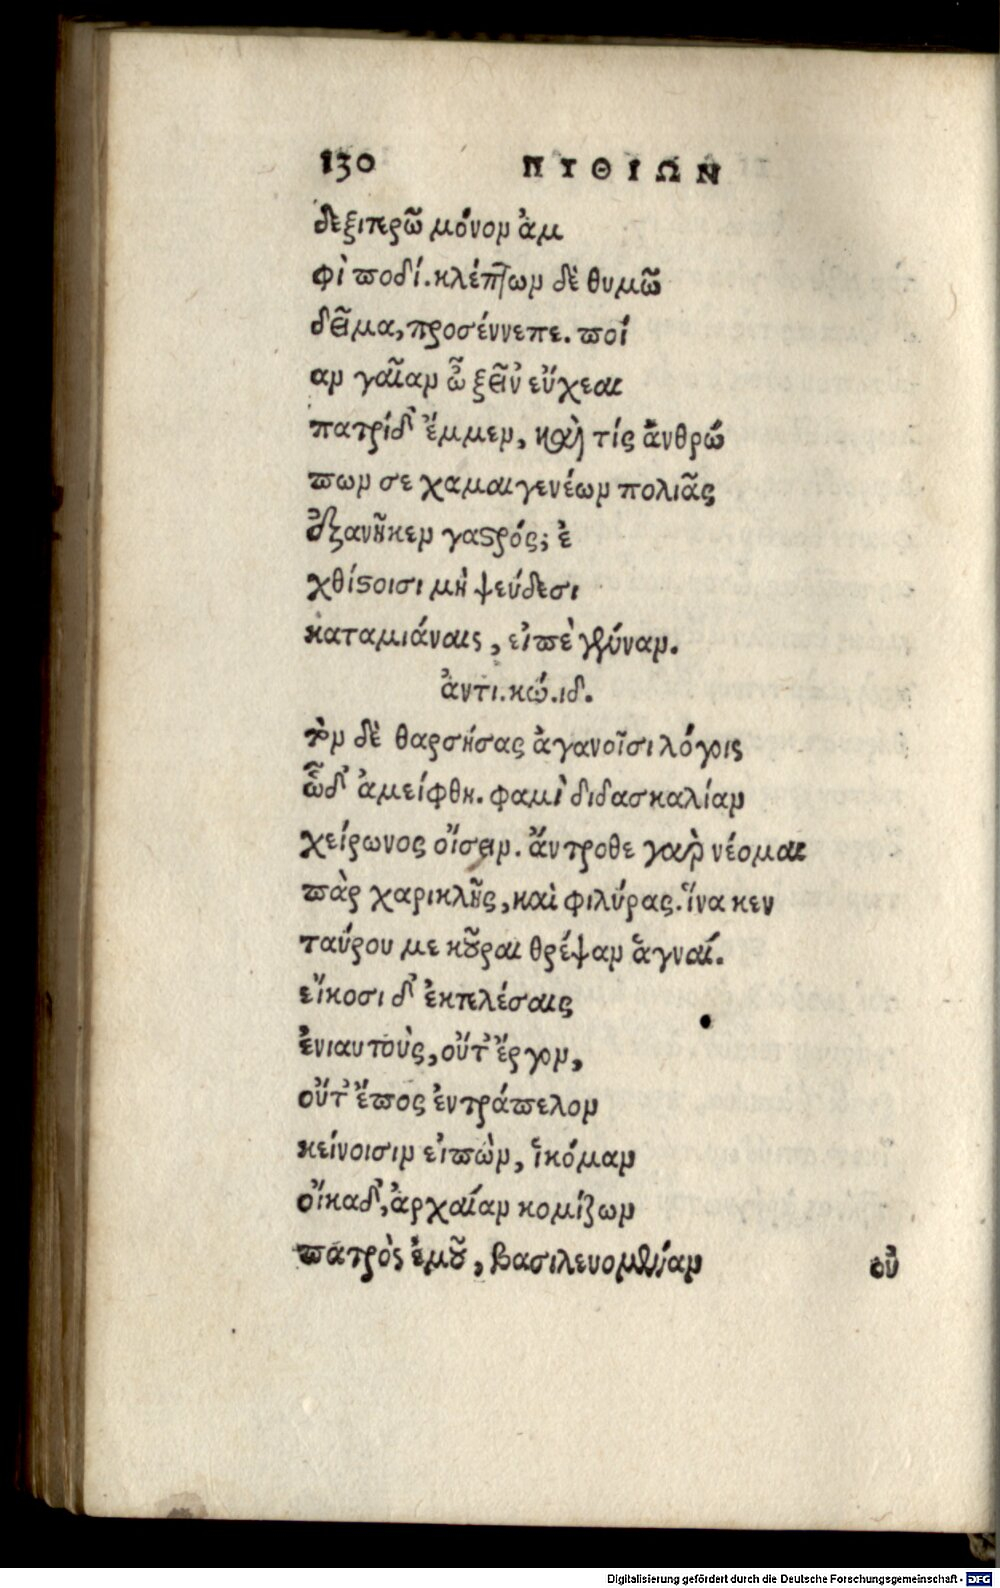 130 ΠΥΘΙΩΝ
δεξιτερῶ μόνον ἀμ
φὶ ποδί. κλέπτων δὲ θυμῶ
δεῖμα, προσέννεπε. ποί
αν γαῖαν ὦ ξεῖν' εὔχεαι
πατρίδ' ἔμμεν, καὶ τίς ἀνθρώ
πων σε χαμαιγενέων πολιᾶς
ἐξανῆκεν γαστρός; ἐ
χθίστοισι μὴ ψεύδεσι
καταμιάναις, εἰπὲ γένναν.
ἀντι. κώ. ιδ.
τὸν δὲ θαρσήσας ἀγανοῖσι λόγοις
ὧδ' ἀμείφθη. φαμὶ διδασκαλίαν
χείρωνος οἴσειν. ἄντροθε γὰρ νέομαι
πὰρ χαρικλοῦς, καὶ φιλύρας. ἵνα κεν
ταύρου με κοῦραι θρέψαν ἁγναί.
εἴκοσι δ' ἐκτελέσαις
ἐνιαυτοὺς, οὔτ' ἔργον,
οὔτ' ἔπος ἐντράπελον
κείνοισιν εἰπὼν, ἱκόμαν
οἴκαδ', ἀρχαίαν κομίζων
πατρὸς ἐμοῦ, βασιλευομέναν
οὐ
Digitalisierung gefördert durch die Deutsche Forschungsgemeinschaft - DFG